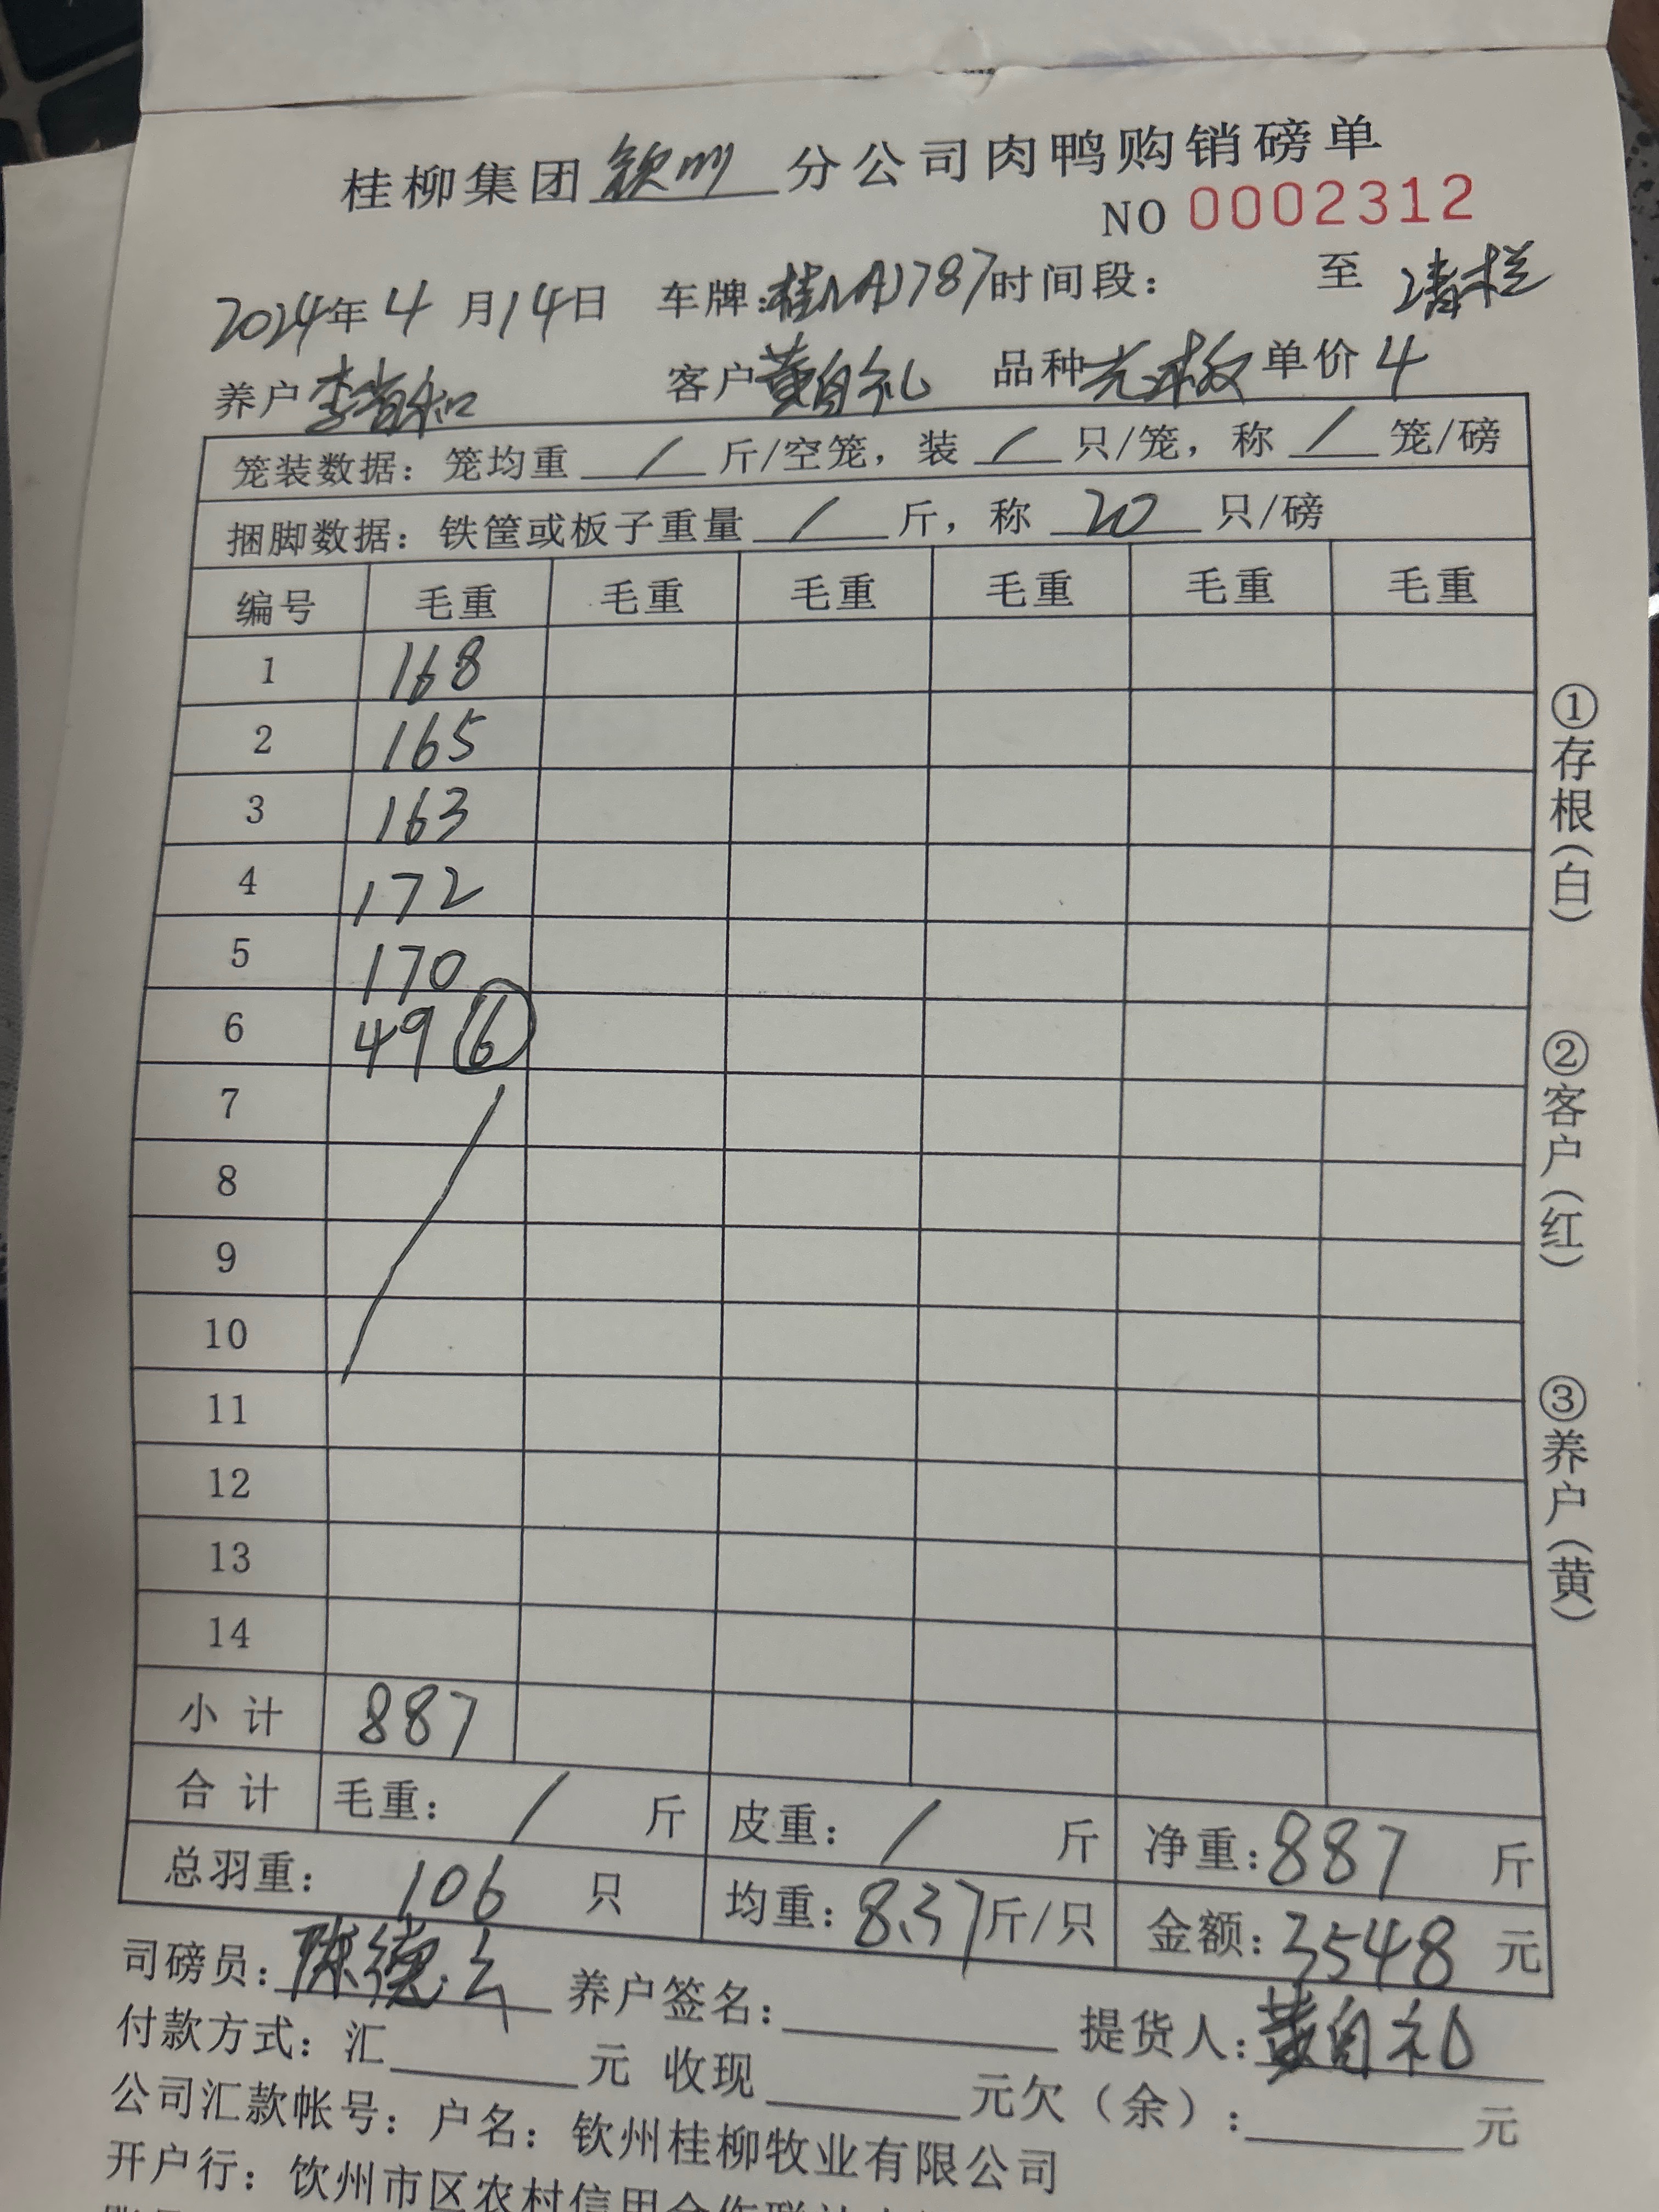 桂柳集团钦州分公司肉鸭购销磅单
NO 0002312
2024年4月14日 车牌:桂NA1787时间段: 至 清栏
养户李肯和 客户黄自礼 品种 单价4
笼装数据:笼均重 / 斤/空笼,装 / 只/笼,称 / 笼/磅
捆脚数据:铁筐或板子重量 / 斤,称 20 只/磅
编号 毛重 毛重 毛重 毛重 毛重 毛重
1 168
2 165
3 163
4 172
5 170
6 49 ⑥
7
8
9
10
11
12
13
14
小计 887
合计 毛重: / 斤 皮重: / 斤 净重:887 斤
总羽重: 106 只 均重:8.37斤/只 金额:3548 元
司磅员:陈德云 养户签名: 提货人:黄自礼
付款方式:汇 元 收现 元欠(余): 元
公司汇款帐号:户名:钦州桂柳牧业有限公司
开户行:钦州市区农村信用合作联社
①存根(白)
②客户(红)
③养户(黄)